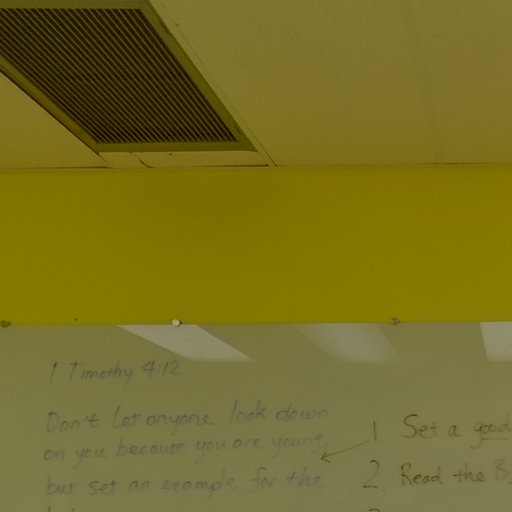 1 Timothy 4:12
Don't let anyone look down
on you because you are young,
but set an example for the
1. Set a good
2. Read the B